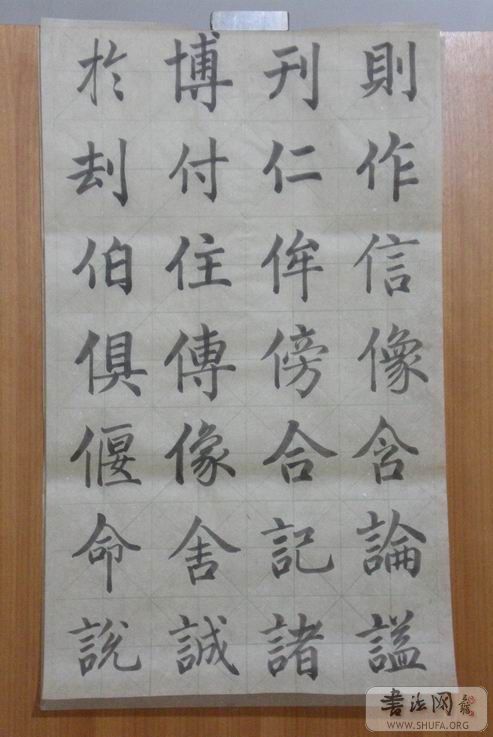 於博刊則
刦付仁作
伯住侔信
俱傳傍像
偃像合含
命舍記論
說誠諸謚
書法网
WWW.SHUFA.ORG